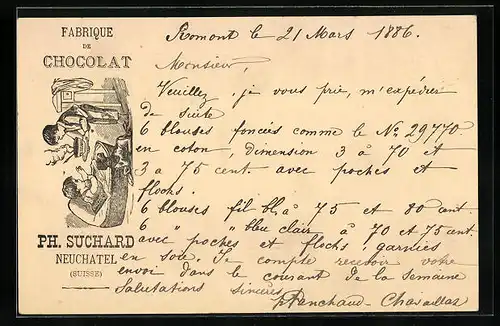 FABRIQUE
DE
CHOCOLAT
PH. SUCHARD
NEUCHATEL
(SUISSE)
Romont le 21 Mars 1886.
Monsieur,
Veuillez, je vous prie, m'expédier
de suite
6 blouses foncés comme le No 29770
en coton, dimension 3 à 70 et
3 à 75 cent. avec poches et
flochs.
6 blouses fil bl. à 75 et 80 cent.
6 " " bleu clair à 70 et 75 cent.
avec poches et flochs, garnies
en soie. Je compte recevoir votre
envoi dans le courant de la semaine
Salutations sincères